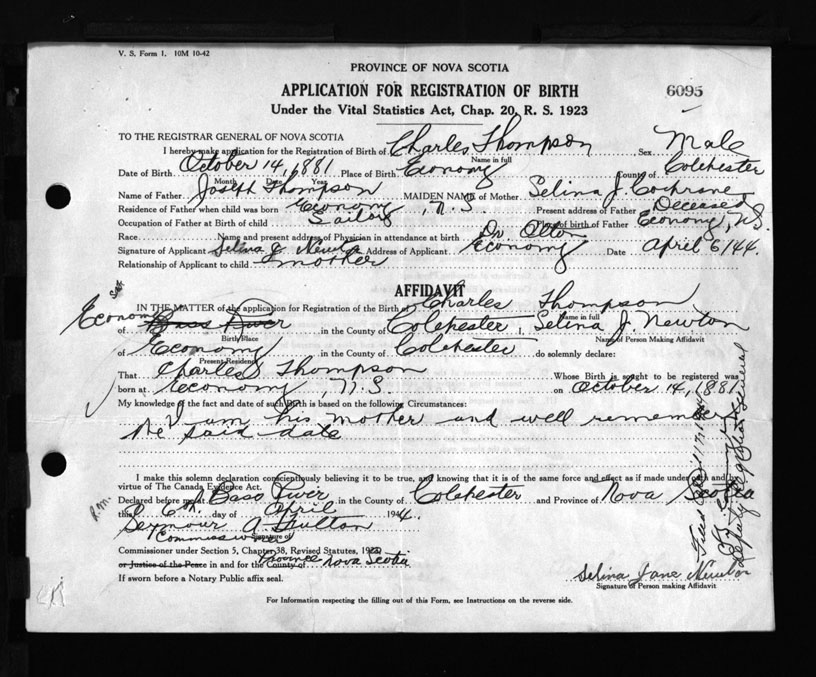 V. S. Form 1. 10M 10-42
PROVINCE OF NOVA SCOTIA
APPLICATION FOR REGISTRATION OF BIRTH
6095
Under the Vital Statistics Act, Chap. 20, R. S. 1923
TO THE REGISTRAR GENERAL OF NOVA SCOTIA
I hereby make application for the Registration of Birth of Charles Thompson Sex Male
Name in full
Date of Birth October 14, 1881 Place of Birth Economy County of Colchester
Month Date Year
Name of Father Joseph Thompson MAIDEN NAME of Mother Selina J. Cochrane
Residence of Father when child was born Economy, N.S. Present address of Father Deceased
Occupation of Father at Birth of child Sailor Place of birth of Father Economy, N.S.
Race Name and present address of Physician in attendance at birth Dr
Signature of Applicant Selina J Newton Address of Applicant Economy Date April 6/44.
Relationship of Applicant to child mother
AFFIDAVIT
IN THE MATTER of the application for Registration of the Birth of Charles Thompson
Name in full
Economy
of Bass River in the County of Colchester I, Selina J. Newton
Birth Place Name of Person Making Affidavit
of Economy in the County of Colchester do solemnly declare:
Present Residence
That Charles Thompson Whose Birth is sought to be registered was
born at Economy, N.S. on October 14, 1881
My knowledge of the fact and date of such Birth is based on the following Circumstances:
I am his mother and well remember
the said date
I make this solemn declaration conscientiously believing it to be true, and knowing that it is of the same force and effect as if made under oath and by
virtue of The Canada Evidence Act.
Declared before me at Bass River in the County of Colchester and Province of Nova Scotia
this 6th day of April 1944.
Seymour A. Fulton
Signature of
Commissioner
Commissioner under Section 5, Chapter 38, Revised Statutes, 1923
or Justice of the Peace in and for the County of Province Nova Scotia
If sworn before a Notary Public affix seal.
Selina Jane Newton
Signature of Person making Affidavit
For Information respecting the filling out of this Form, see Instructions on the reverse side.
Deputy Registrar General